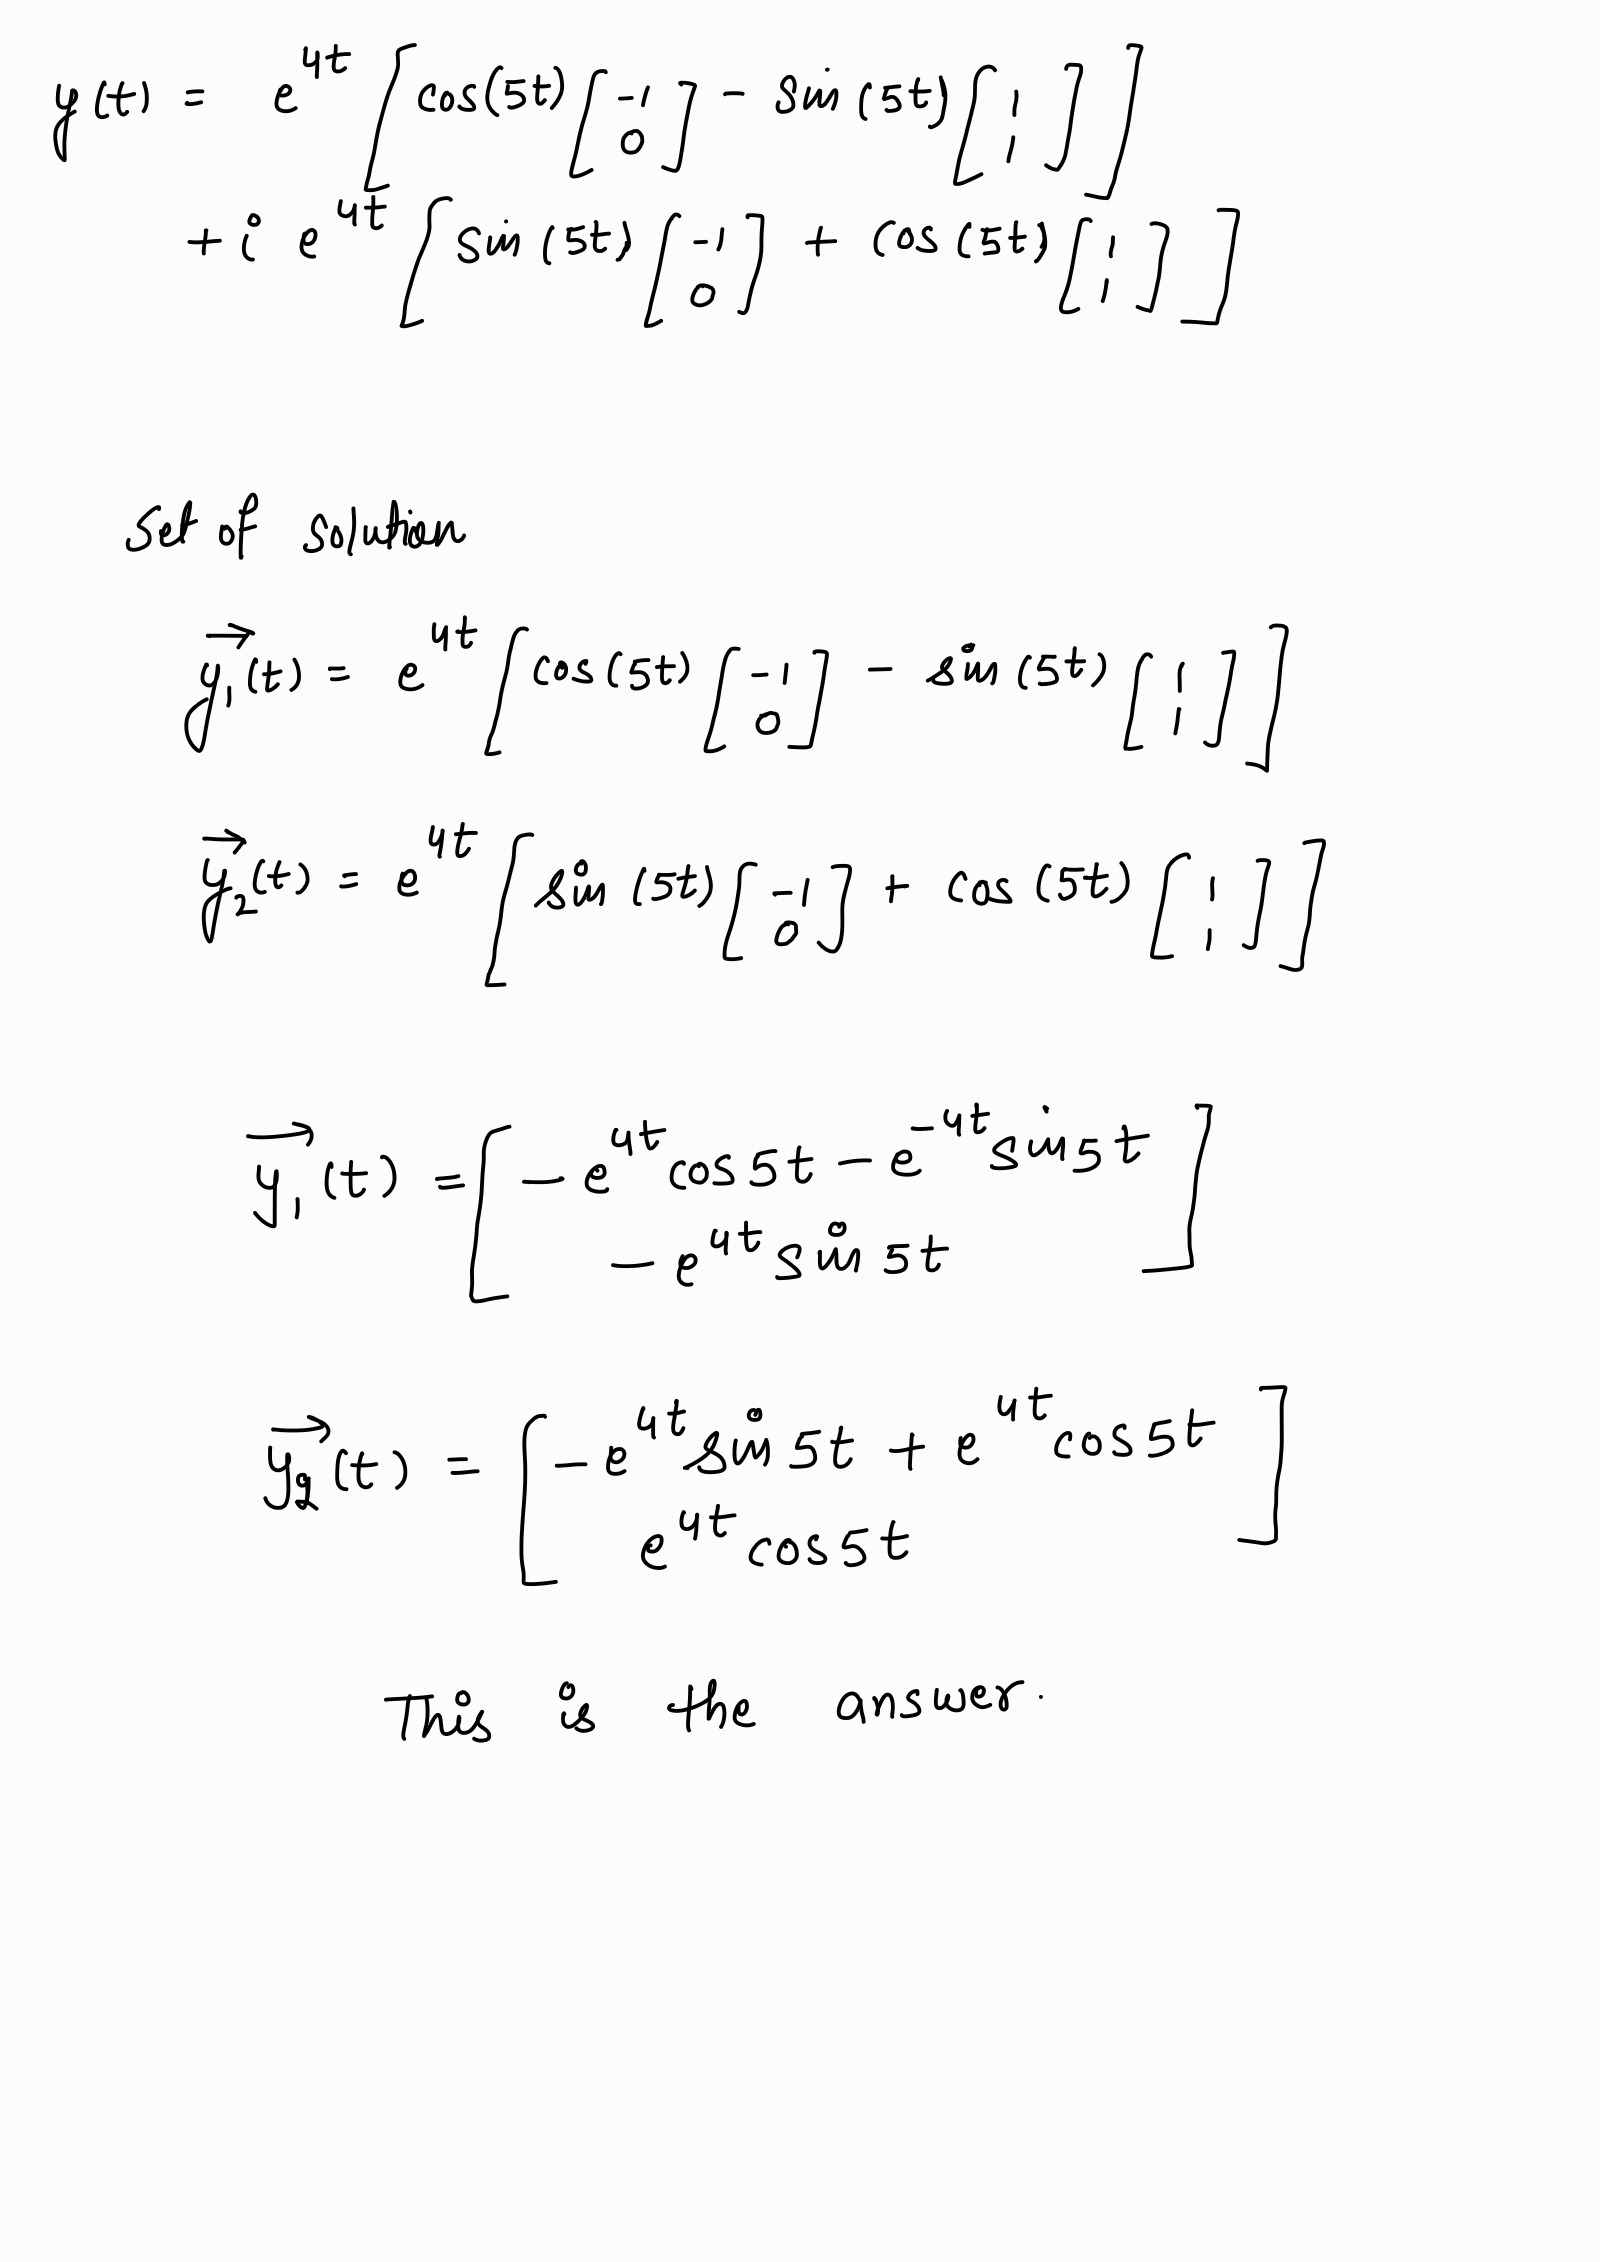 y(t) = e^{4t} [ cos(5t) [ -1 0 ] - sin(5t) [ 1 1 ] ]
+ i e^{4t} [ sin(5t) [ -1 0 ] + cos(5t) [ 1 1 ] ]
Set of solution
\vec{y_1}(t) = e^{4t} [ cos(5t) [ -1 0 ] - sin(5t) [ 1 1 ] ]
\vec{y_2}(t) = e^{4t} [ sin(5t) [ -1 0 ] + cos(5t) [ 1 1 ] ]
\vec{y_1}(t) = [ - e^{4t} cos5t - e^{-4t} sin5t
- e^{4t} sin5t ]
\vec{y_2}(t) = [ - e^{4t} sin5t + e^{4t} cos5t
e^{4t} cos5t ]
This is the answer.